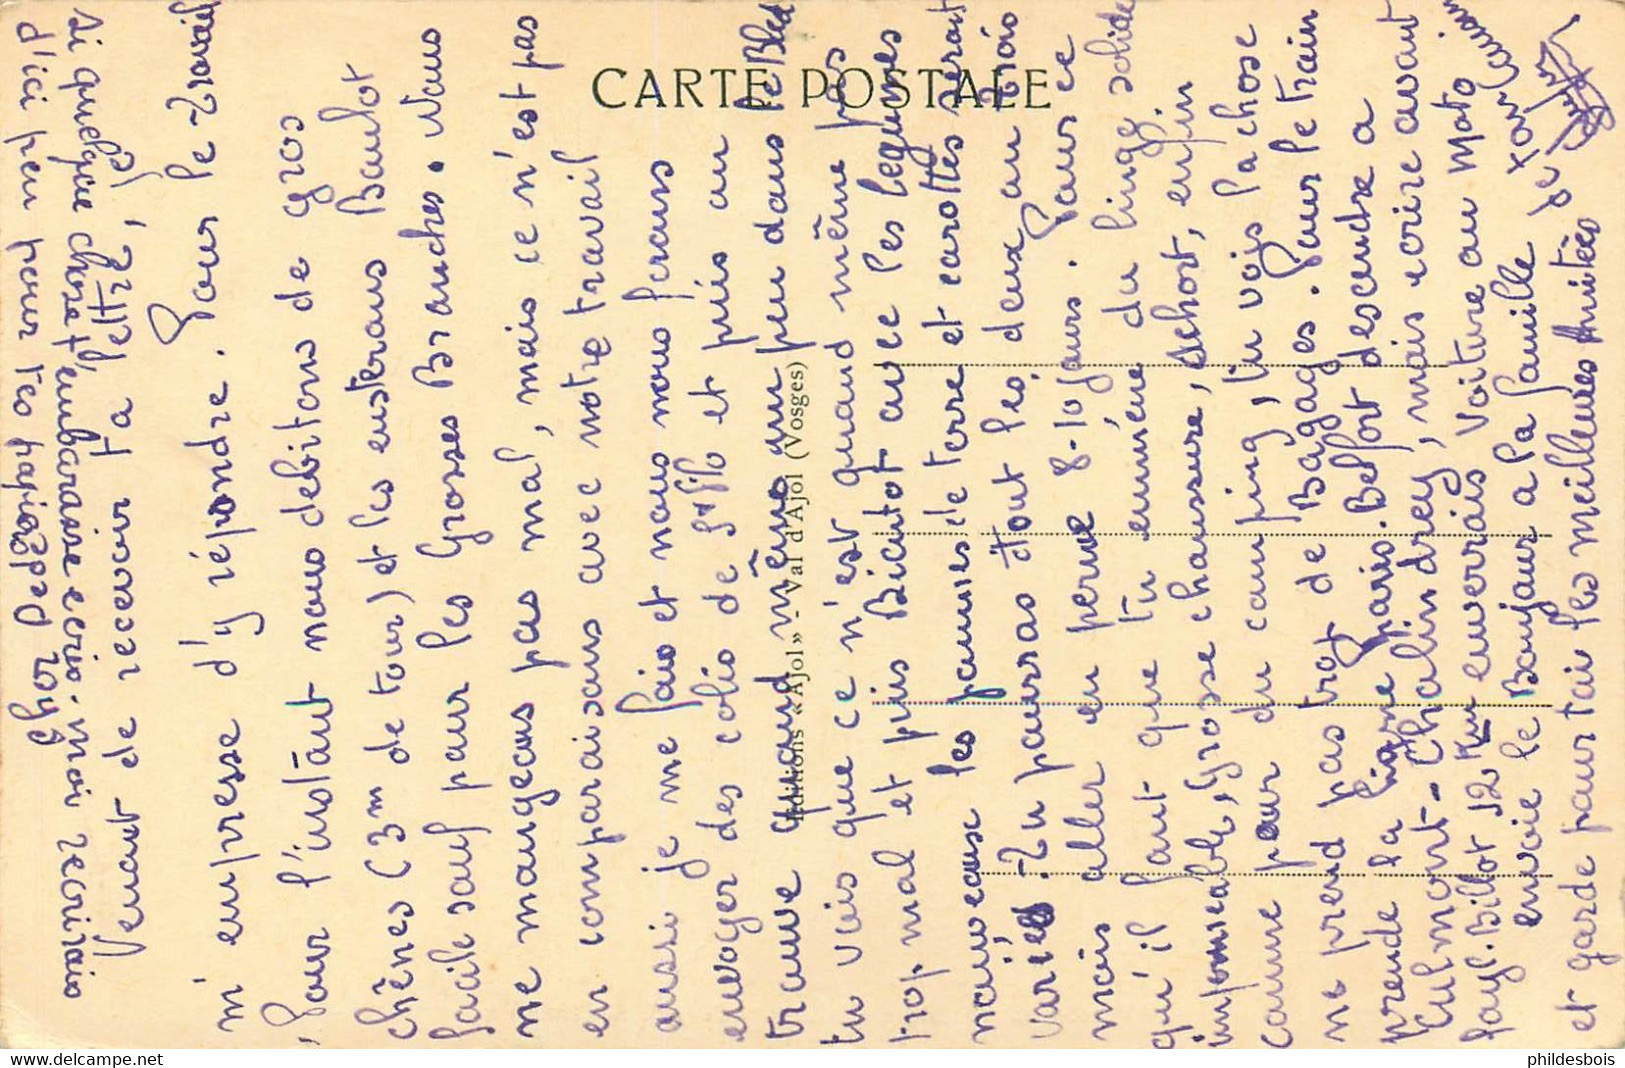 CARTE POSTALE
Editions «Ajol» - Val d'Ajol (Vosges)
Venant de recevoir ta lettre, je
m'empresse d'y répondre. Pour le travail
Pour l'instant nous debitons de gros
chênes (3m de tour) et les
facile sauf pour les Grosses Branches. Nous
ne mangeons pas mal, mais ce n'est pas
en comparaisons avec notre travail
aussi je me fais et nous nous ferons
envoyer des colis de et puis on
trouve quand même un peu dans le Bled
tu vois que ce n'est quand même pas
trop mal et puis Bientot avec les legumes
nouveaux les pommes de terre et carottes seront
variés. Tu pourras tout les deux ou trois
mois aller en perme 8-10 jours. Pour ce
qu'il faut que tu emmène du linge solide
imperméable, Grosse chaussure, short, enfin
comme pour du camping, tu vois la chose
ne prend pas trop de Bagages. Pour le train
prende la ligne Paris.Belfort descendre a
Culmont-Chalindrey, mais ecrire avant
Fayl-Billot 12 Km enverrais Voiture au Moto
envoie le Bonjour a la famille de
et garde pour toi les meilleures Amitiès
si quelque chose t'embarasse ecris-moi recrirais
d'ici peu pour tes papiers